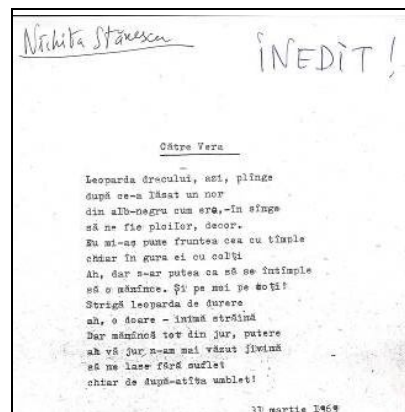 Nichita Stănescu
INEDIT!
Către Vera
Leoparda dracului, azi, plînge
după ce-a lăsat un nor
din alb-negru cum era,-în sînge
să ne fie ploilor, decor.
Eu mi-aş pune fruntea cea cu tîmple
chiar în gura ei cu colţi
Ah, dar s-ar putea ca să se întîmple
să o mănînce. Şi pe mei pe toţi!
Strigă leoparda de durere
ah, o doare - inimă străină
Dar mănîncă tot din jur, putere
ah vă jur n-am mai văzut jivină
să ne lase fără suflet
chiar de după-atîta umblet!
31 martie 1969